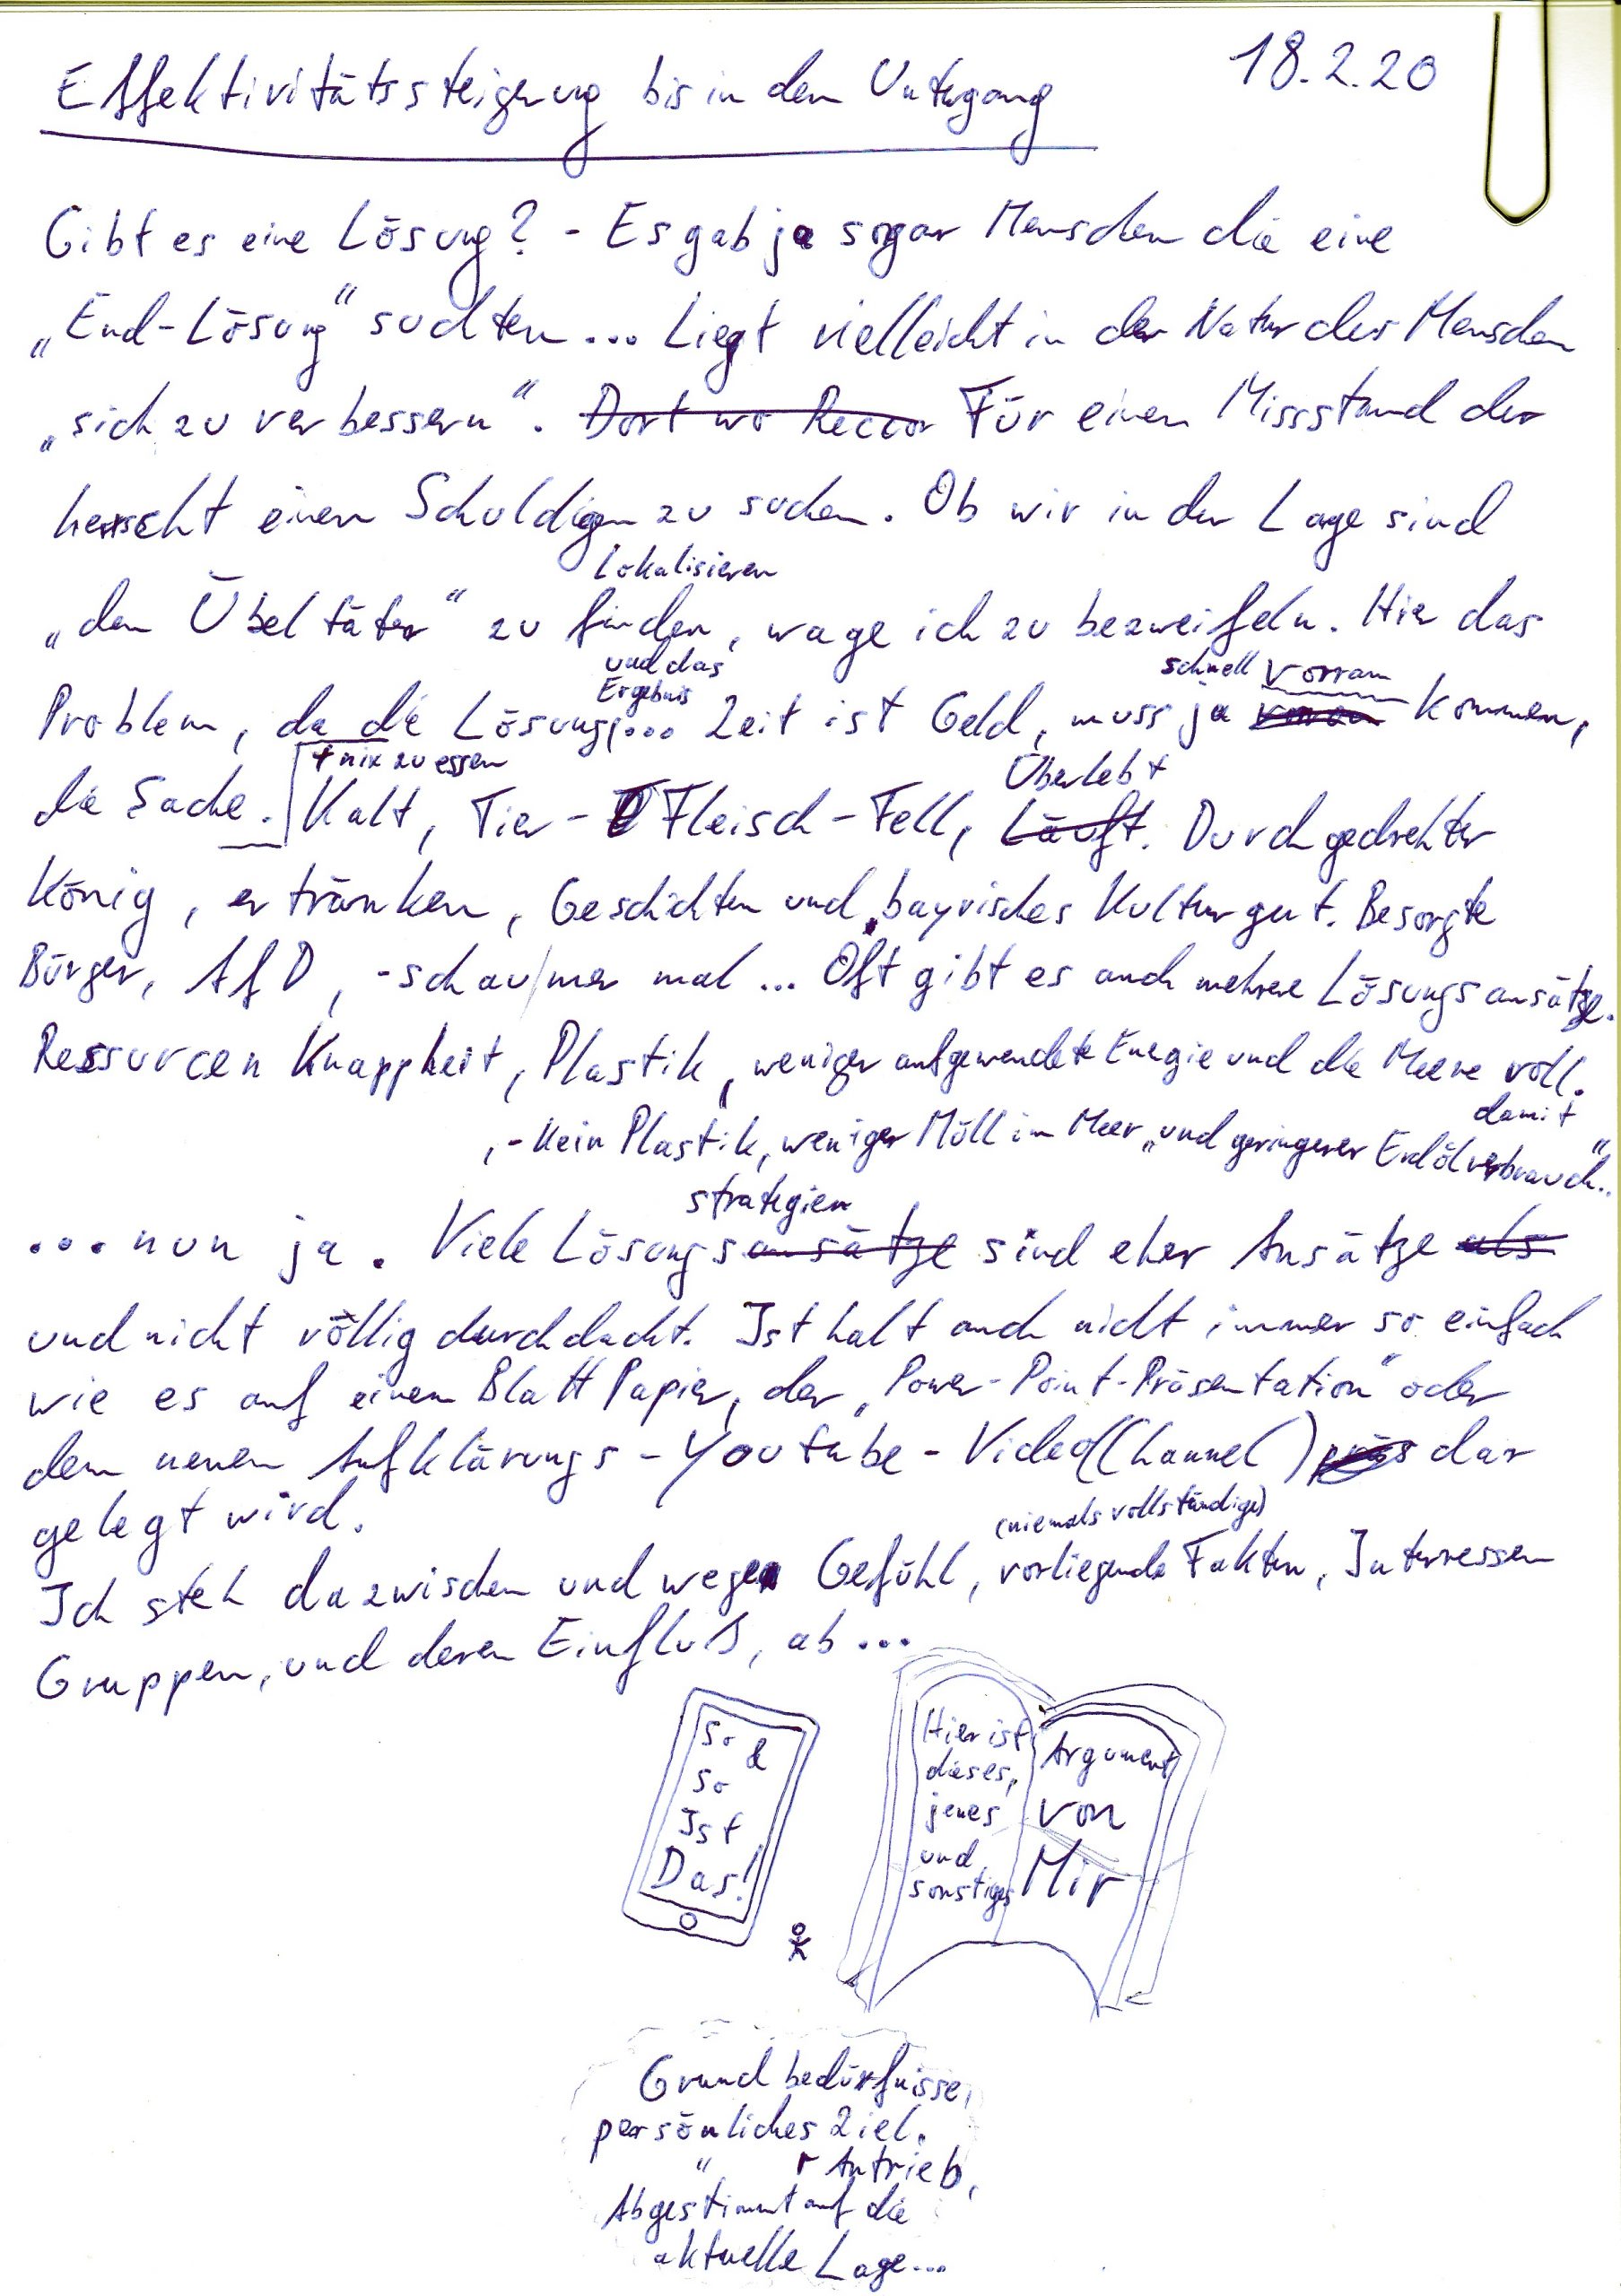 18.2.20
Effektivitätssteigerung bis in den Untergang
Gibt es eine Lösung? - Es gab ja sogar Menschen die eine
„End-Lösung" suchten... Liegt vielleicht in der Natur des Menschen
„sich zu verbessern". Dort wo Für einen Missstand der
herrscht einen Schuldigen zu suchen. Ob wir in der Lage sind
Lokalisieren
„den Übeltäter" zu finden, wage ich zu bezweifeln. Hier das
und das
Ergebnis
schnell vorran
Problem, da die Lösung,... Zeit ist Geld, muss ja kommen,
+ nix zu essen
Überlebt
die Sache. Kalt, Tier - Fleisch - Fell, Läuft. Durchgedrehter
König, ertränken, Geschichten und bayrisches Kulturgut. Besorgte
Bürger, AfD, - schau/mer mal... Oft gibt es auch mehrere Lösungsansätze.
Ressurcen Knappheit, Plastik, weniger aufgewendete Energie und die Meere voll.
damit
,- Kein Plastik, weniger Müll im Meer „und geringerer Erdölverbrauch"..
strategien
...nun ja. Viele Lösungsansätze sind eher Ansätze als
und nicht völlig durchdacht. Ist halt auch nicht immer so einfach
wie es auf einem Blatt Papier, der „Power-Point-Präsentation" oder
dem neuen Aufklärungs-Youtube-Video(Channel) dar
gelegt wird.
(niemals vollständige)
Ich steh dazwischen und wegen Gefühl, vorliegende Fakten, Interressen
Gruppen, und deren Einfluß, ab...
So &
So
Ist
Das!
Hier ist
dieses,
jenes
und
sonstiges
Argument
von
Mir
Grundbedürfnisse,
persönliches Ziel.
" r Antrieb,
Abgestimmt auf die
aktuelle Lage...